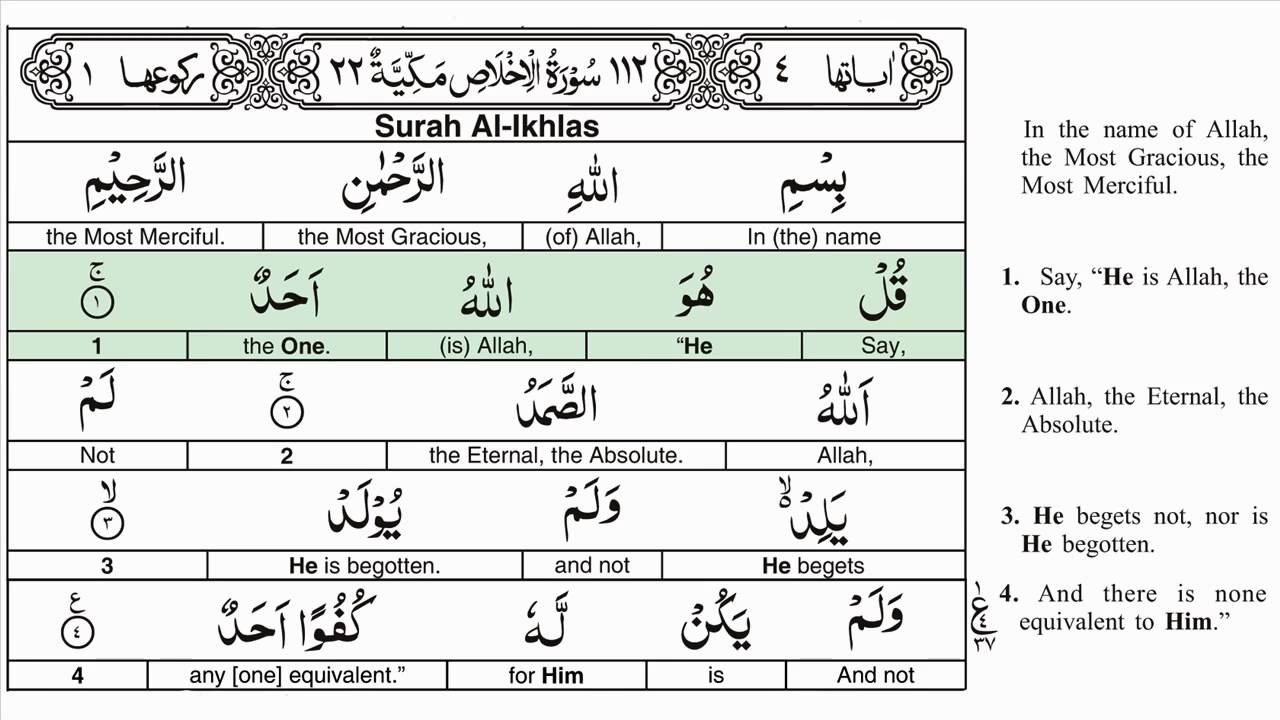 اٰیاتها ٤ ١١٢ سُوْرَةُ الْاِخْلَاصِ مَكِّيَّةٌ ٢٢ ركوعها ١
Surah Al-Ikhlas
بِسْمِ اللّٰهِ الرَّحْمٰنِ الرَّحِيْمِ
the Most Merciful. the Most Gracious, (of) Allah, In (the) name
قُلْ هُوَ اللّٰهُ اَحَدٌ ۚ ١
1 the One. (is) Allah, “He Say,
اَللّٰهُ الصَّمَدُ ۚ ٢ لَمْ
Not 2 the Eternal, the Absolute. Allah,
يَلِدْ ۙ۬ وَلَمْ يُوْلَدْ ۙ ٣
3 He is begotten. and not He begets
وَلَمْ يَكُنْ لَّهٗ كُفُوًا اَحَدٌ ع ٤
4 any [one] equivalent.” for Him is And not
١ ع ٤ ٣٧
In the name of Allah,
the Most Gracious, the
Most Merciful.
1. Say, “He is Allah, the
One.
2. Allah, the Eternal, the
Absolute.
3. He begets not, nor is
He begotten.
4. And there is none
equivalent to Him.”